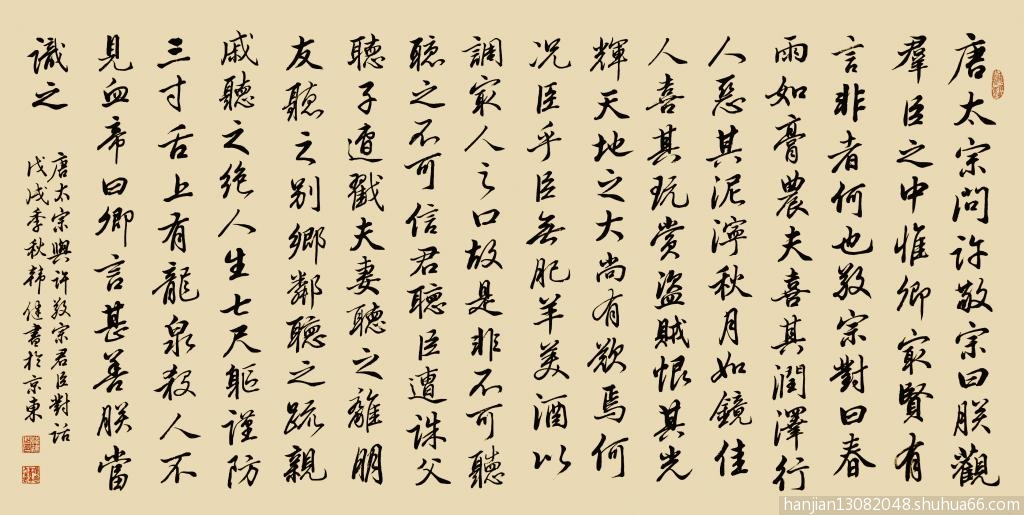 唐太宗問許敬宗曰朕觀
羣臣之中惟卿冣賢有
言非者何也敬宗對曰春
雨如膏農夫喜其潤澤行
人惡其泥濘秋月如鏡佳
人喜其玩賞盜賊恨其光
輝天地之大尚有焉何
况臣乎臣無肥羊美酒以
調冣人之口故是非不可聽
聽之不可信君聽臣遭誅父
聽子遭戳夫妻聽之離朋
友聽之别鄉鄰聽之疏親
戚聽之絶人生七尺軀謹防
三寸舌上有龍泉殺人不
見血帝曰卿言甚善朕當
識之
唐太宗與許敬宗君臣對話
戊戌季秋韓健書於京東
hanjian13082048.shuhua66.com